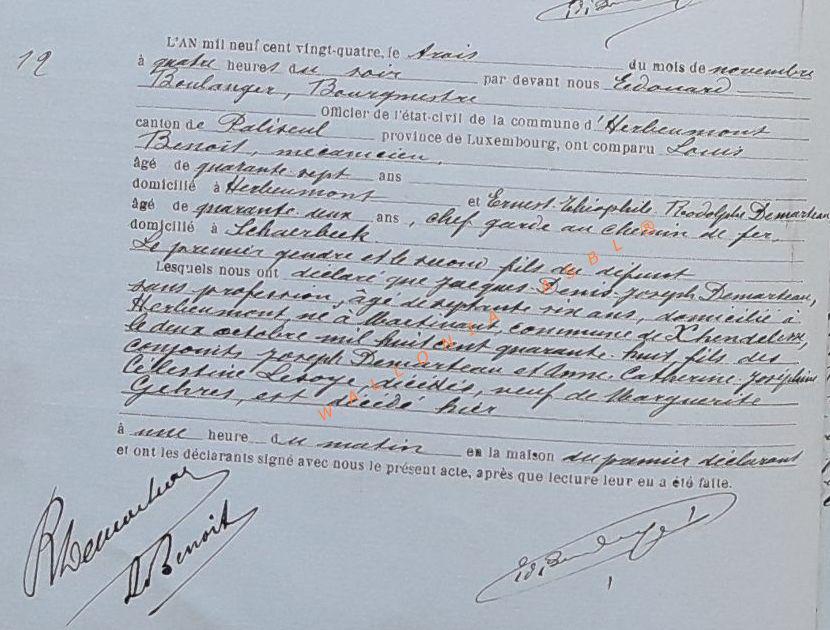 12
L'AN mil neuf cent vingt-quatre, le trois du mois de novembre
à quatre heures du soir par devant nous Edouard
Boulanger, Bourgmestre
Officier de l'état-civil de la commune d'Herbeumont
canton de Paliseul province de Luxembourg, ont comparu Louis
Benoit, mécanicien,
âgé de quarante-sept ans
domicilié à Herbeumont et Ernest Théophile Rodolphe Demarteau
âgé de quarante-deux ans, chef garde au chemin de fer,
domicilié à Schaerbeek
Le premier gendre et le second fils du défunt
Lesquels nous ont déclaré que Jacques Denis Joseph Demarteau,
sans profession, âgé de septante six ans, domicilié à
Herbeumont, né à commune de Xhendelesse,
le deux octobre mil huit cent quarante-huit fils des
conjoints Joseph Demarteau et Anne Catherine Joséphine
Célestine décédés, veuf de Marguerite
est décédé hier
à une heure du matin en la maison du premier déclarant
et ont les déclarants signé avec nous le présent acte, après que lecture leur en a été faite.
RDemarteau
L Benoit
Ed. Boulanger
WALLONIA ASBL ®